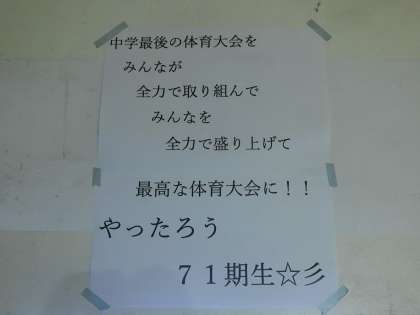 中学最後の体育大会を
みんなが
全力で取り組んで
みんなを
全力で盛り上げて
最高な体育大会に！！
やったろう
７１期生☆彡